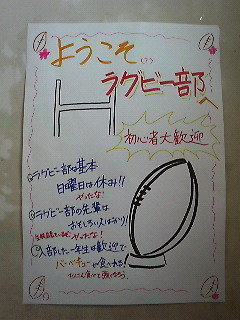 ようこそ
ラグビー部へ
初心者大歓迎
ラグビー部は基本
日曜日は休み!!
やったな!
ラグビー部の先輩は
おもしろい人ばかり!
やったな!
入部した一年生は歓迎で
バーベキューが食べれる!